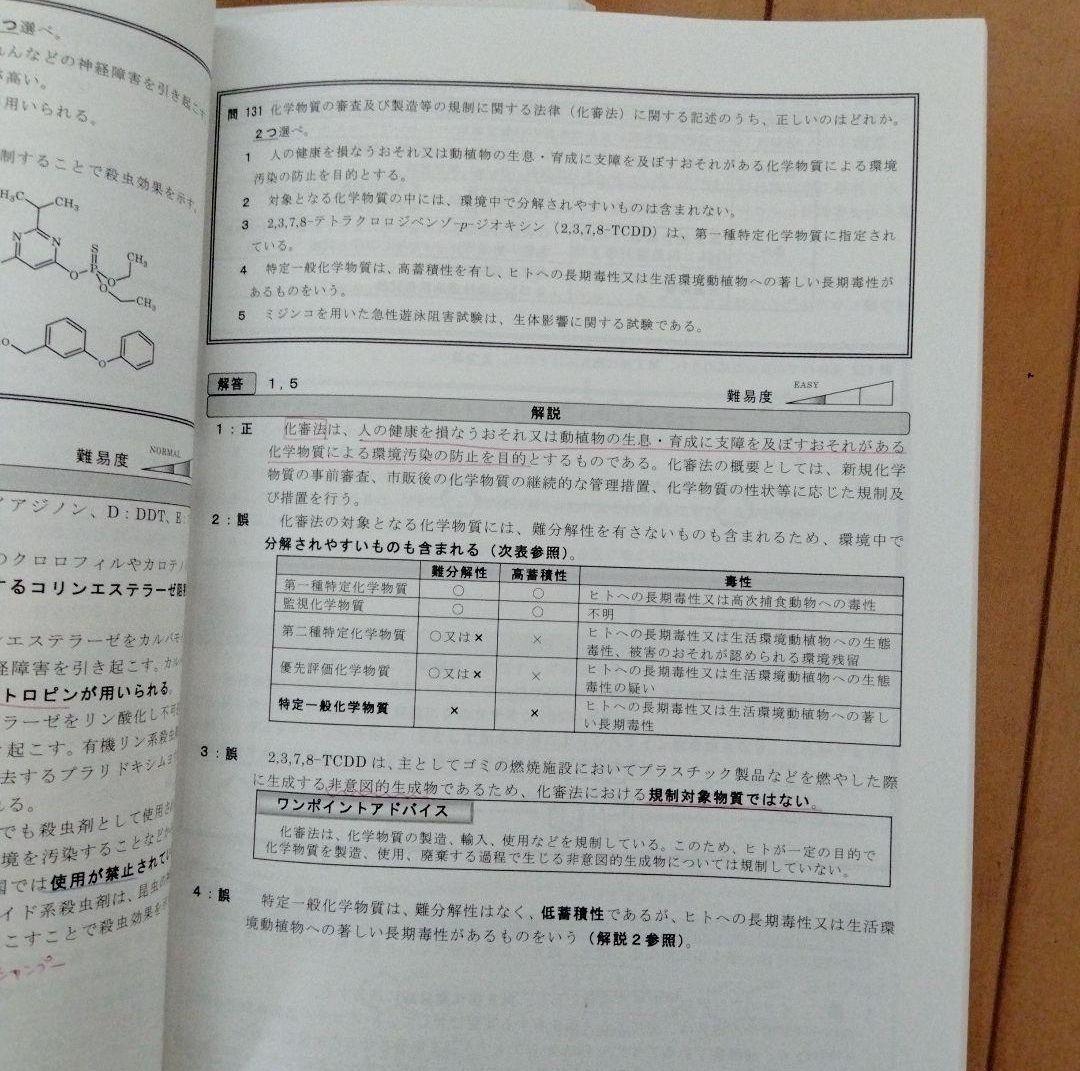 2つ選べ。
れんなどの神経障害を引き起こす
が高い。
用いられる。
制することで殺虫効果を示す。
H₃C
CH₃
N
N
S
P
O
O
O
CH₃
CH₃
O
O
難易度
NORMAL
イアジノン、D：DDT、E：
のクロロフィルやカロテノ
するコリンエステラーゼ阻
ンエステラーゼをカルバモ
経障害を引き起こす。カル
トロピンが用いられる。
ラーゼをリン酸化し不可
起こす。有機リン系殺虫
去するプラリドキシムヨ
れる。
でも殺虫剤として使用さ
境を汚染することなどか
国では使用が禁止されてい
イド系殺虫剤は、昆虫の
こすことで殺虫効果を示
シャンプー
問 131 化学物質の審査及び製造等の規制に関する法律（化審法）に関する記述のうち、正しいのはどれか。
2つ選べ。
1 人の健康を損なうおそれ又は動植物の生息・育成に支障を及ぼすおそれがある化学物質による環境
汚染の防止を目的とする。
2 対象となる化学物質の中には、環境中で分解されやすいものは含まれない。
3 2,3,7,8-テトラクロロジベンゾ-p-ジオキシン（2,3,7,8-TCDD）は、第一種特定化学物質に指定され
ている。
4 特定一般化学物質は、高蓄積性を有し、ヒトへの長期毒性又は生活環境動植物への著しい長期毒性が
あるものをいう。
5 ミジンコを用いた急性遊泳阻害試験は、生体影響に関する試験である。
解答 1, 5
難易度 EASY
解説
1：正 化審法は、人の健康を損なうおそれ又は動植物の生息・育成に支障を及ぼすおそれがある
化学物質による環境汚染の防止を目的とするものである。化審法の概要としては、新規化学
物質の事前審査、市販後の化学物質の継続的な管理措置、化学物質の性状等に応じた規制及
び措置を行う。
2：誤 化審法の対象となる化学物質には、難分解性を有さないものも含まれるため、環境中で
分解されやすいものも含まれる（次表参照）。
難分解性 高蓄積性 毒性
第一種特定化学物質 ○ ○ ヒトへの長期毒性又は高次捕食動物への毒性
監視化学物質 ○ ○ 不明
第二種特定化学物質 ○又は× × ヒトへの長期毒性又は生活環境動植物への生態
毒性、被害のおそれが認められる環境残留
優先評価化学物質 ○又は× × ヒトへの長期毒性又は生活環境動植物への生態
毒性の疑い
特定一般化学物質 × × ヒトへの長期毒性又は生活環境動植物への著し
い長期毒性
3：誤 2,3,7,8-TCDDは、主としてゴミの燃焼施設においてプラスチック製品などを燃やした際
に生成する非意図的生成物であるため、化審法における規制対象物質ではない。
ワンポイントアドバイス
化審法は、化学物質の製造、輸入、使用などを規制している。このため、ヒトが一定の目的で
化学物質を製造、使用、廃棄する過程で生じる非意図的生成物については規制していない。
4：誤 特定一般化学物質は、難分解性はなく、低蓄積性であるが、ヒトへの長期毒性又は生活環
境動植物への著しい長期毒性があるものをいう（解説2参照）。